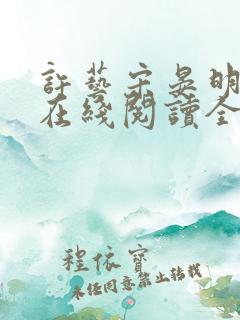 許藝宗吳明
在綫閱讀全
程依寶
未经同意禁止转载